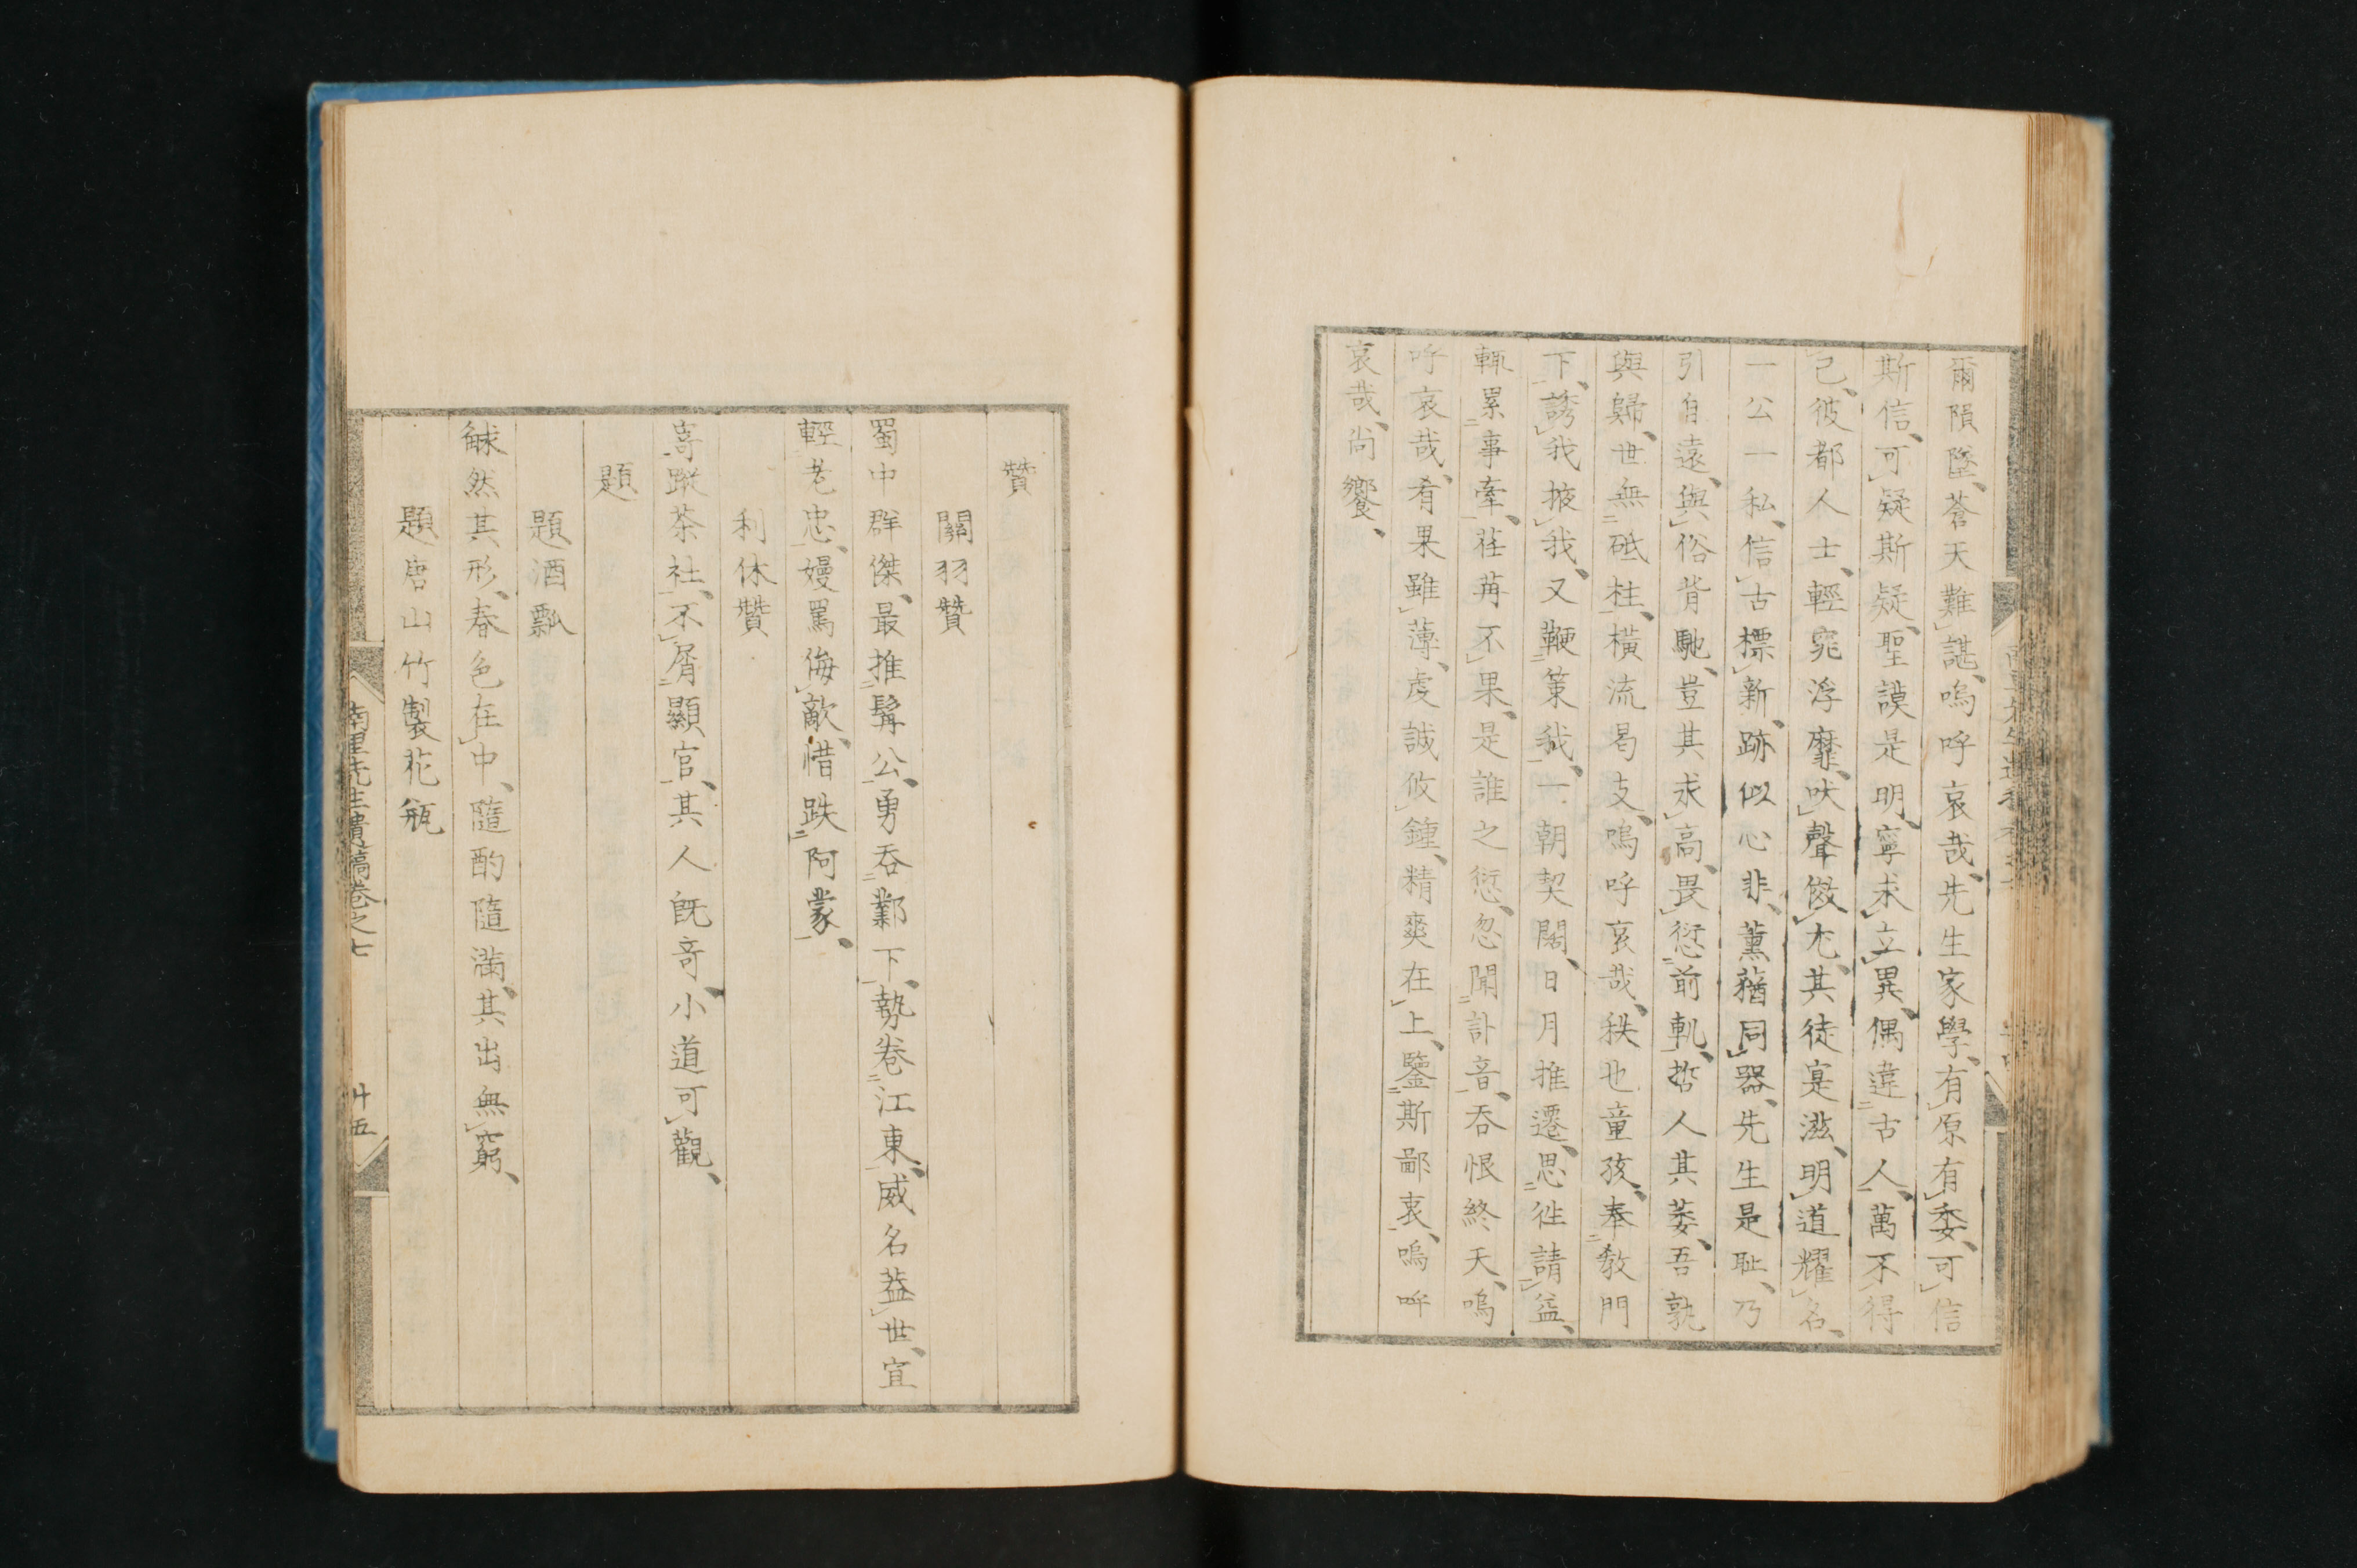 爾隕墜、蒼天難諶、嗚呼哀哉、先生家學、有原有委、可信
斯信、可疑斯疑、聖謨是明、寧求立異、偶違古人、萬不得
已、彼都人士、輕窕浮靡、吠聲傚尤、其徒寔滋、明道耀名、
一公一私、信古標新、跡似心非、薫蕕同器、先生是恥、乃
引自遠、與俗背馳、豈其求高、畏愆前軌、哲人其萎、吾孰
與歸、世無砥柱、橫流曷支、嗚呼哀哉、秩也童孩、奉教門
下、誘我掖我、又鞭策我、一朝契闊、日月推遷、思徃請益、
輒累事牽、荏苒不果、是誰之愆、忽聞訃音、吞恨終天、嗚
呼哀哉、肴果雖薄、虔誠攸鍾、精爽在上、鑒斯鄙衷、嗚呼
哀哉、尚饗、
贊
關羽贊
蜀中群傑、最推髯公、勇吞鄴下、勢卷江東、威名蓋世、宜
輕老忠、嫚罵侮敵、惜跌阿蒙、
利休贊
寄蹤茶社、不屑顯官、其人既奇、小道可觀、
題
題酒瓢
觩然其形、春色在中、隨酌隨滿、其出無窮、
題唐山竹製花瓶
南里先生遺稿卷之七
廿五